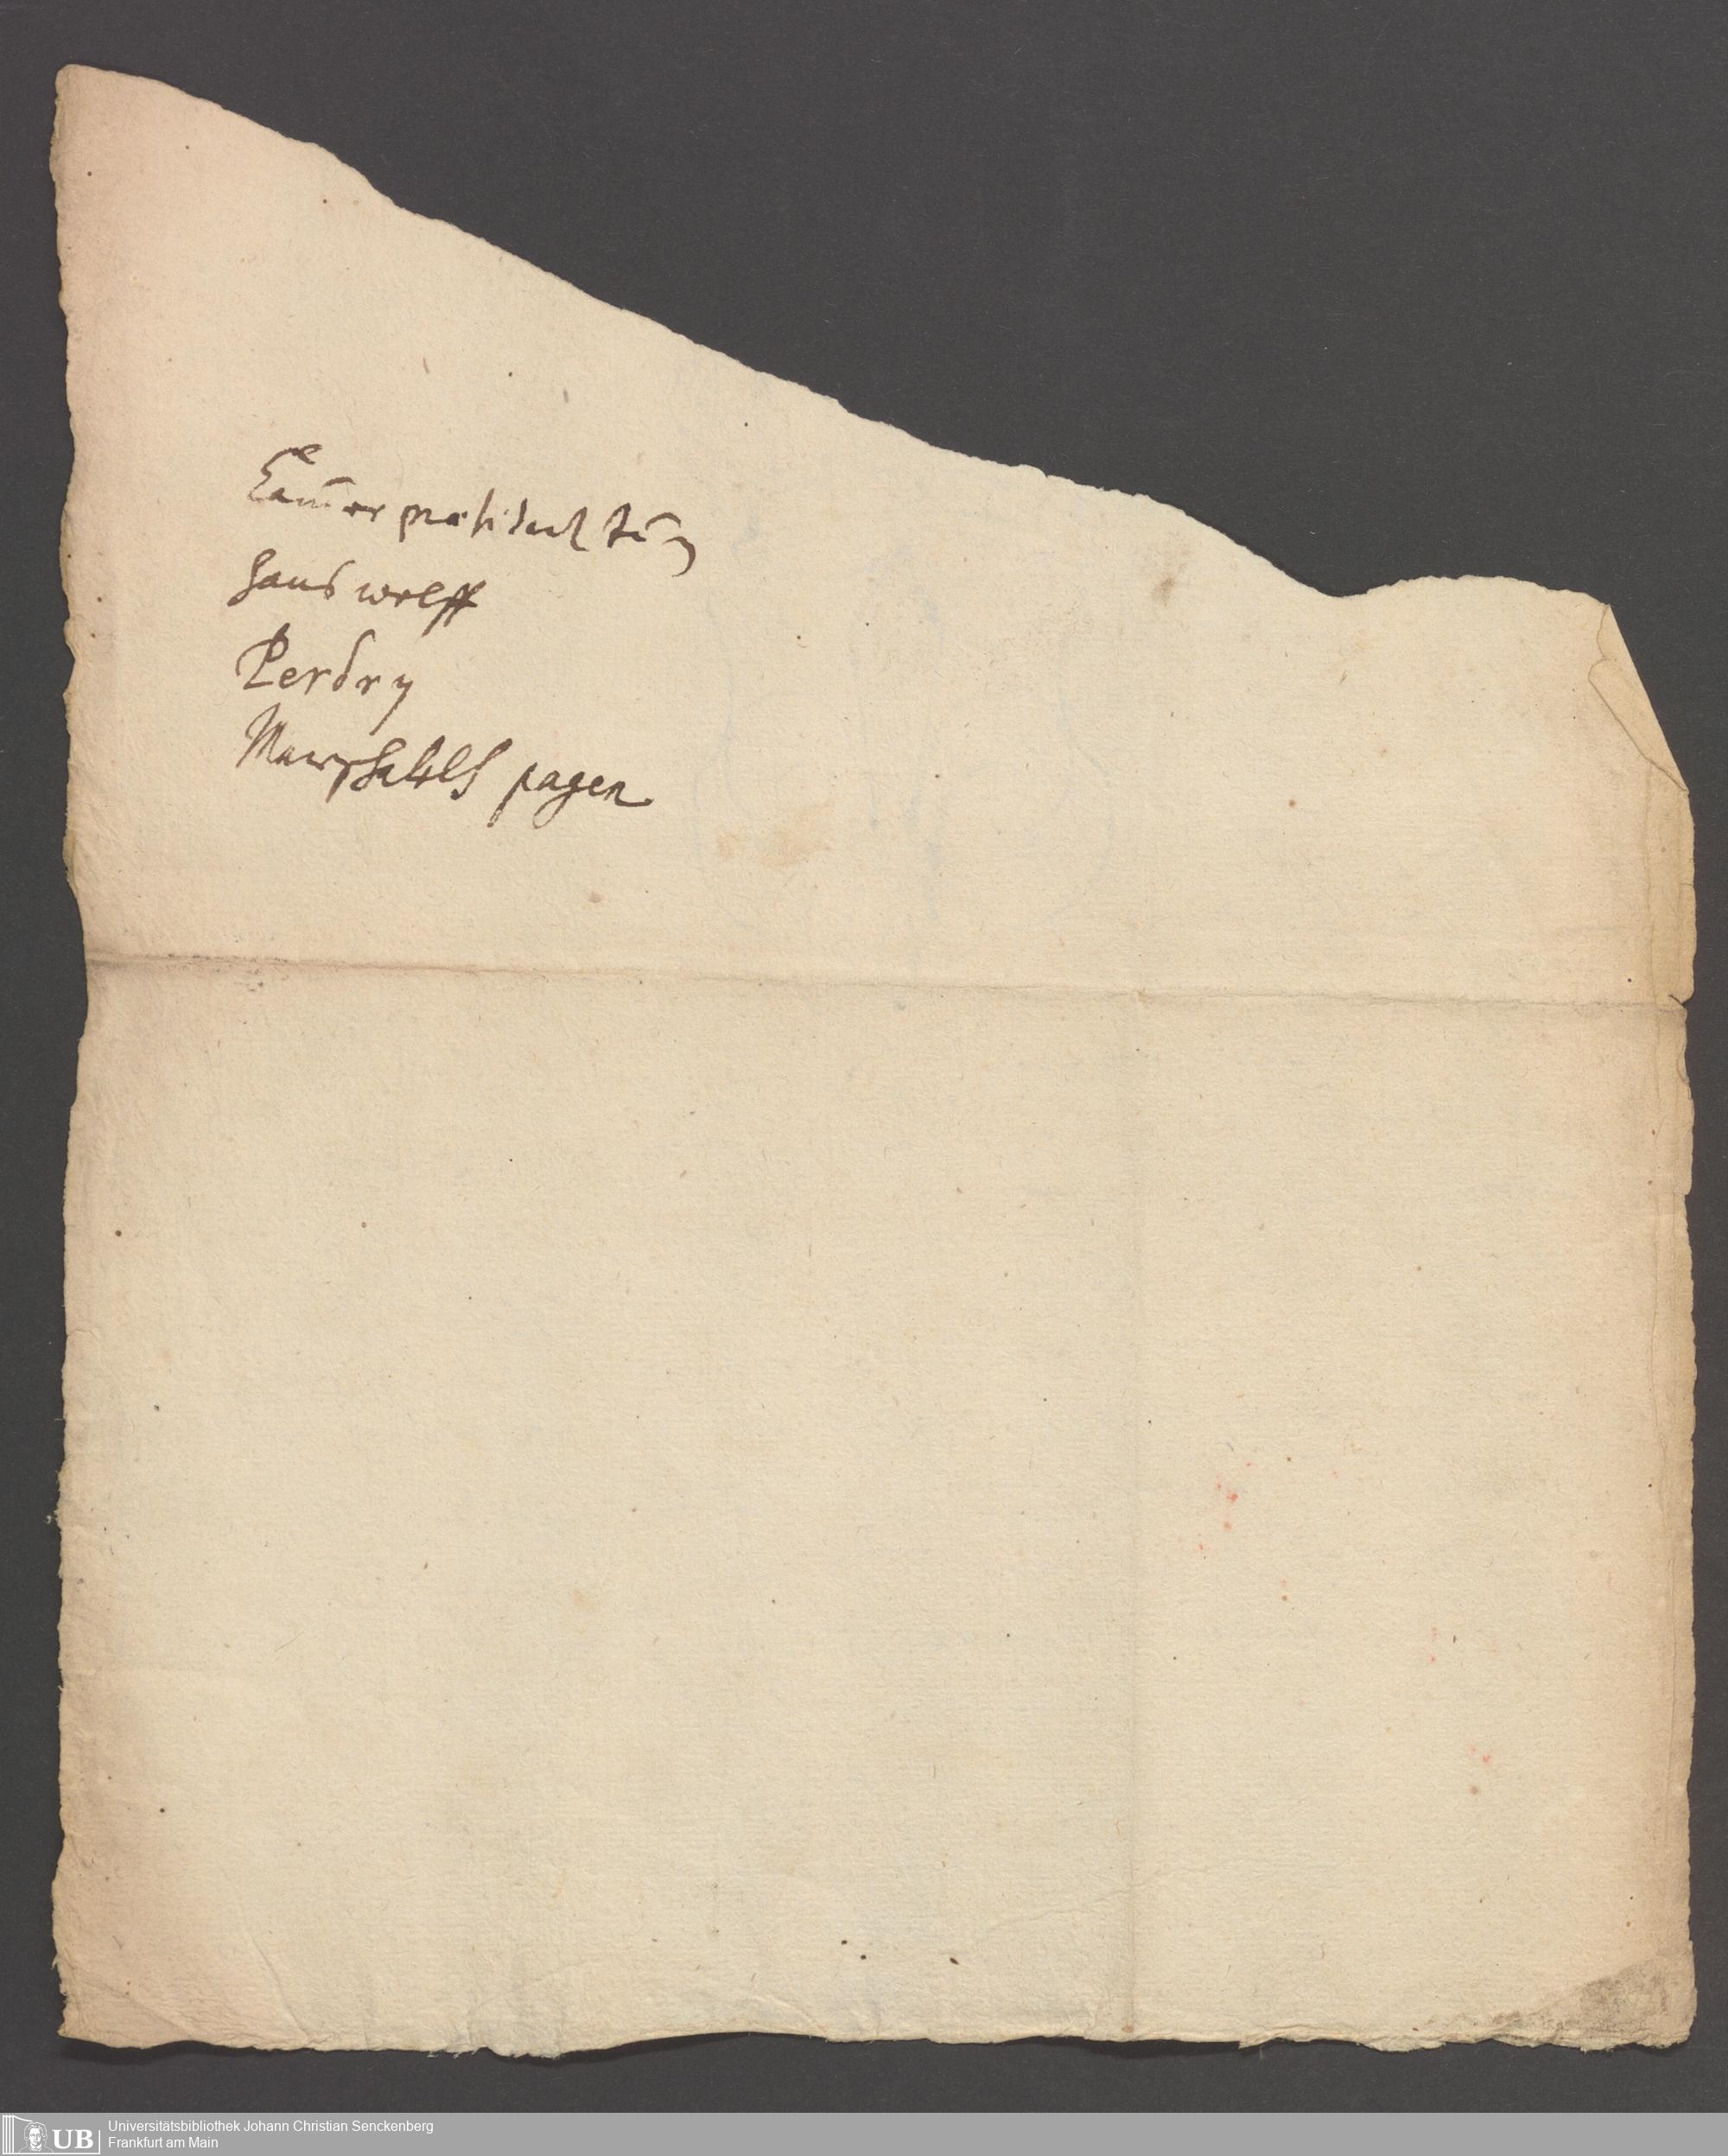 hans wolff
Perdry
Marschalchs pagen
UB Universitätsbibliothek Johann Christian Senckenberg
Frankfurt am Main